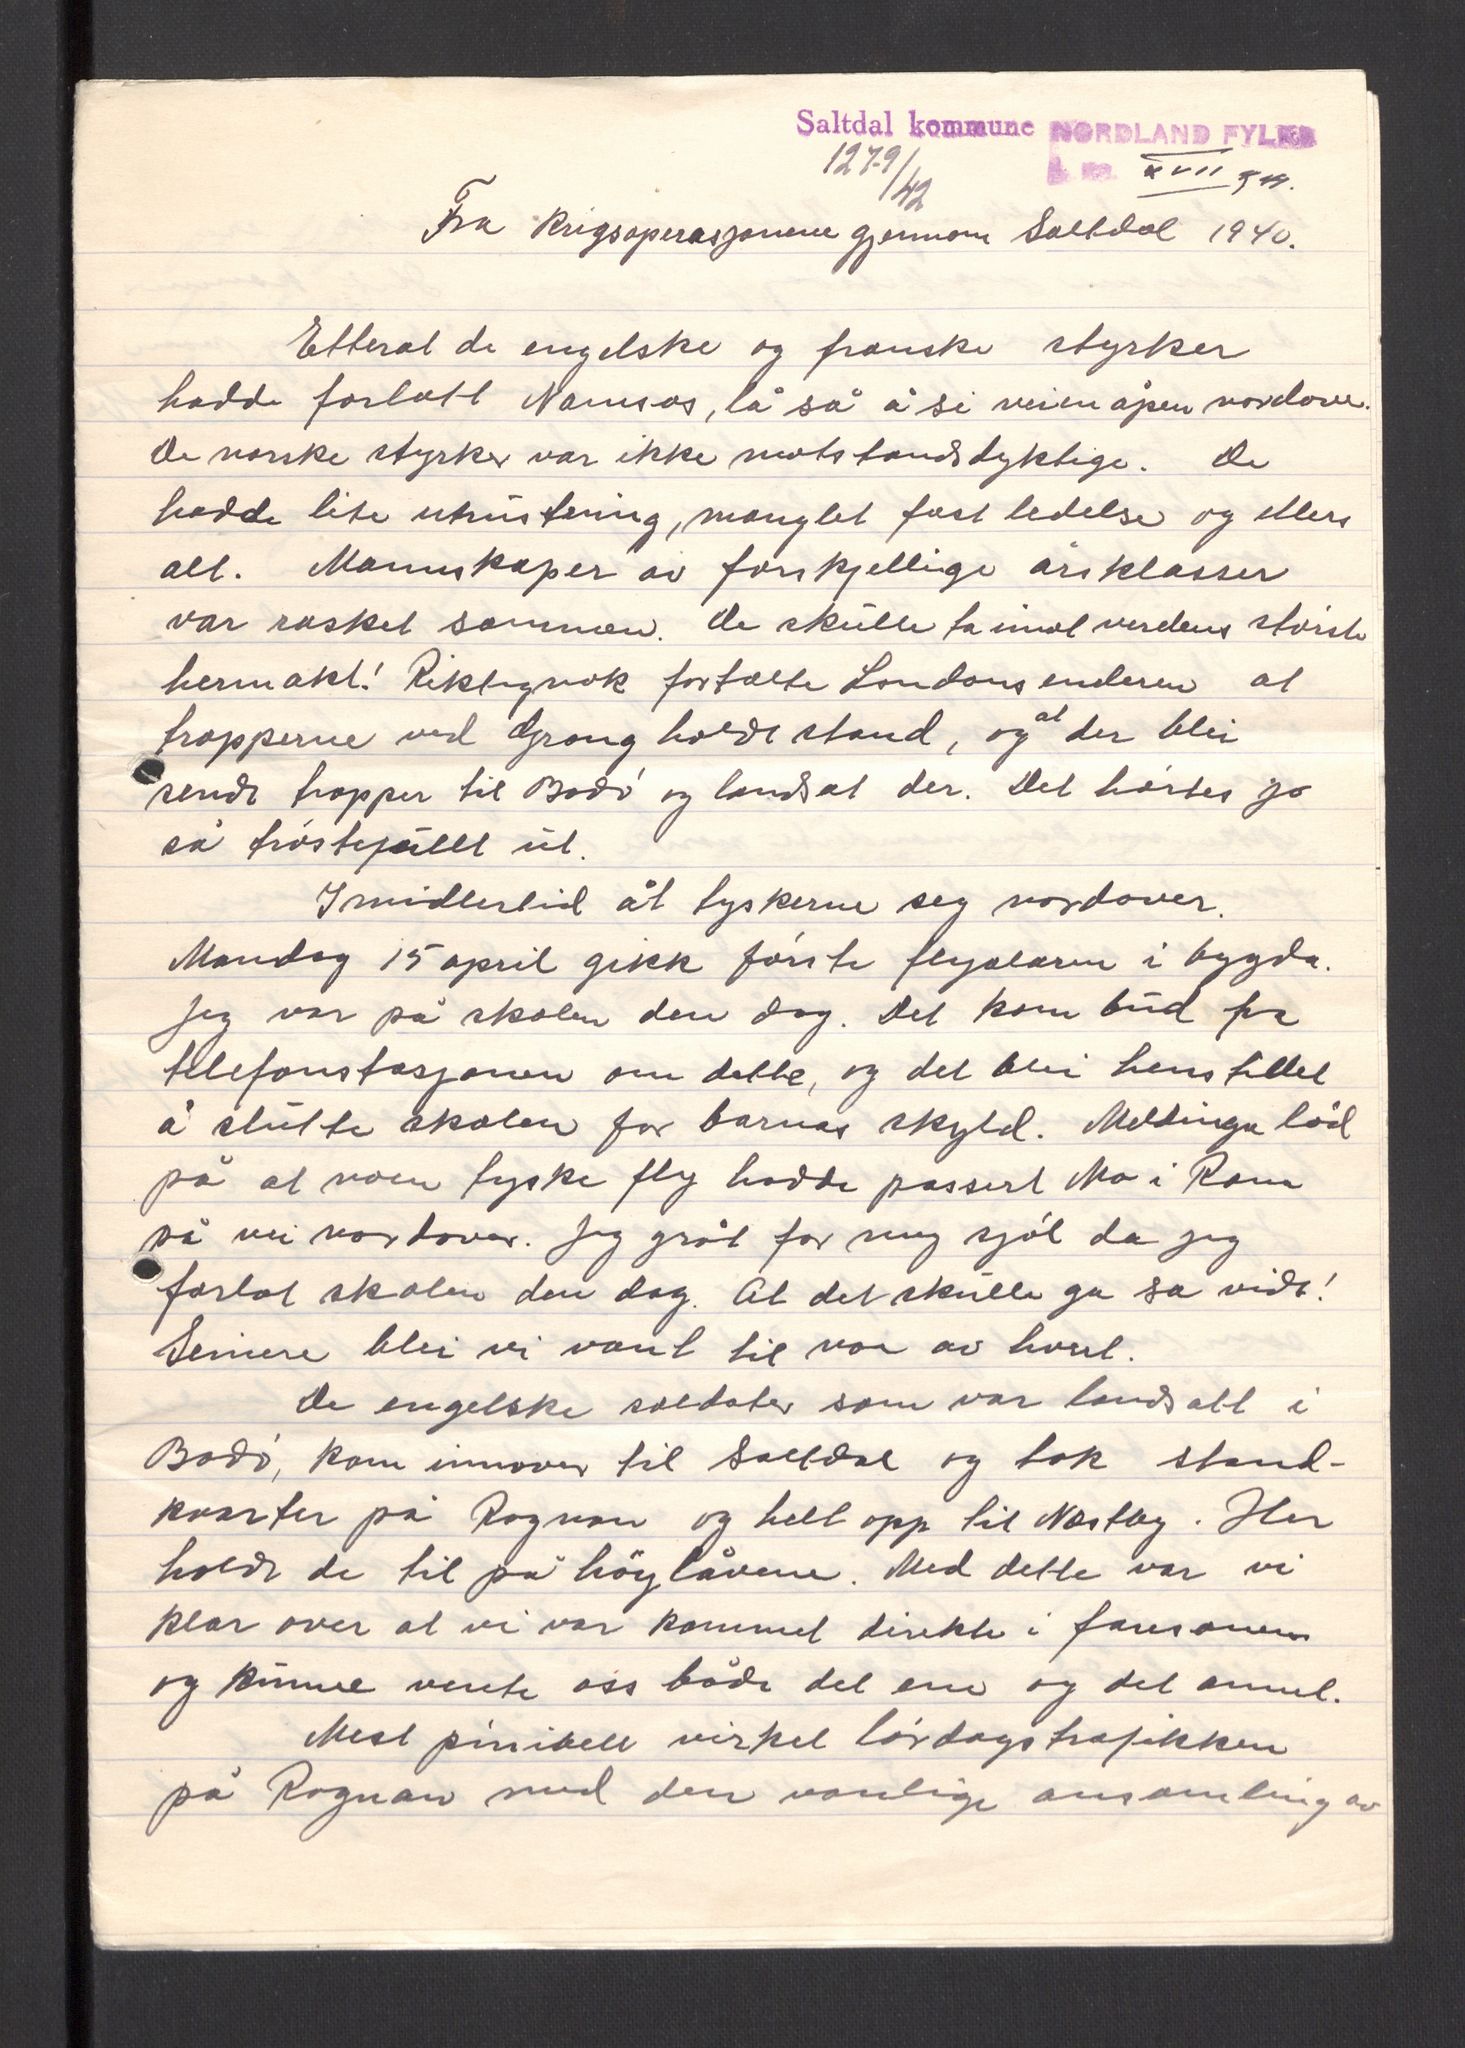 Saltdal kommune NORDLAND FYLKE
1279/42
XVII
Fra krigsoperasjonene gjennom Saltdal 1940.
Etterat de engelske og franske styrker
hadde forlatt Namsos, lå så å si veien åpen nordover.
De norske styrker var ikke motstandsdyktige. De
hadde lite utrustning, manglet fast ledelse og ellers
alt. Mannskaper av forskjellige årsklasser
var rasket sammen. De skulle ta imot verdens störste
hermakt! Riktignok fortalte Londonsenderen at
tropperne ved Grong holdt stand, og at der blei
sendt tropper til Bodö og landsat der. Det hörtes jo
så tröstefullt ut.
Imidlertid åt tyskerne seg nordover.
Mandag 15 april gikk förste flyalarm i bygda.
Jeg var på skolen den dag. Det kom bud fra
telefonstasjonen om dette, og det blei henstillet
å slutte skolen for barnas skyld. Meldinga löd
på at noen tyske fly hadde passert Mo i Rana
på vei nordover. Jeg gråt for meg sjöl da jeg
forlot skolen den dag. At det skulle ga sa vidt!
Seinere blei vi vant til noe av hvert.
De engelske soldater som var landsatt i
Bodö, kom innover til Saltdal og tok stand-
kvarter på Rognan og helt opp til Nestby. Her
holdt de til på höylåvene. Med dette var vi
klar over at vi var kommet direkte i faresonen
og kunne vente oss både det ene og det annet.
Mest pinibelt virket lördagstrafikken
på Rognan med den vanlige ansamling av